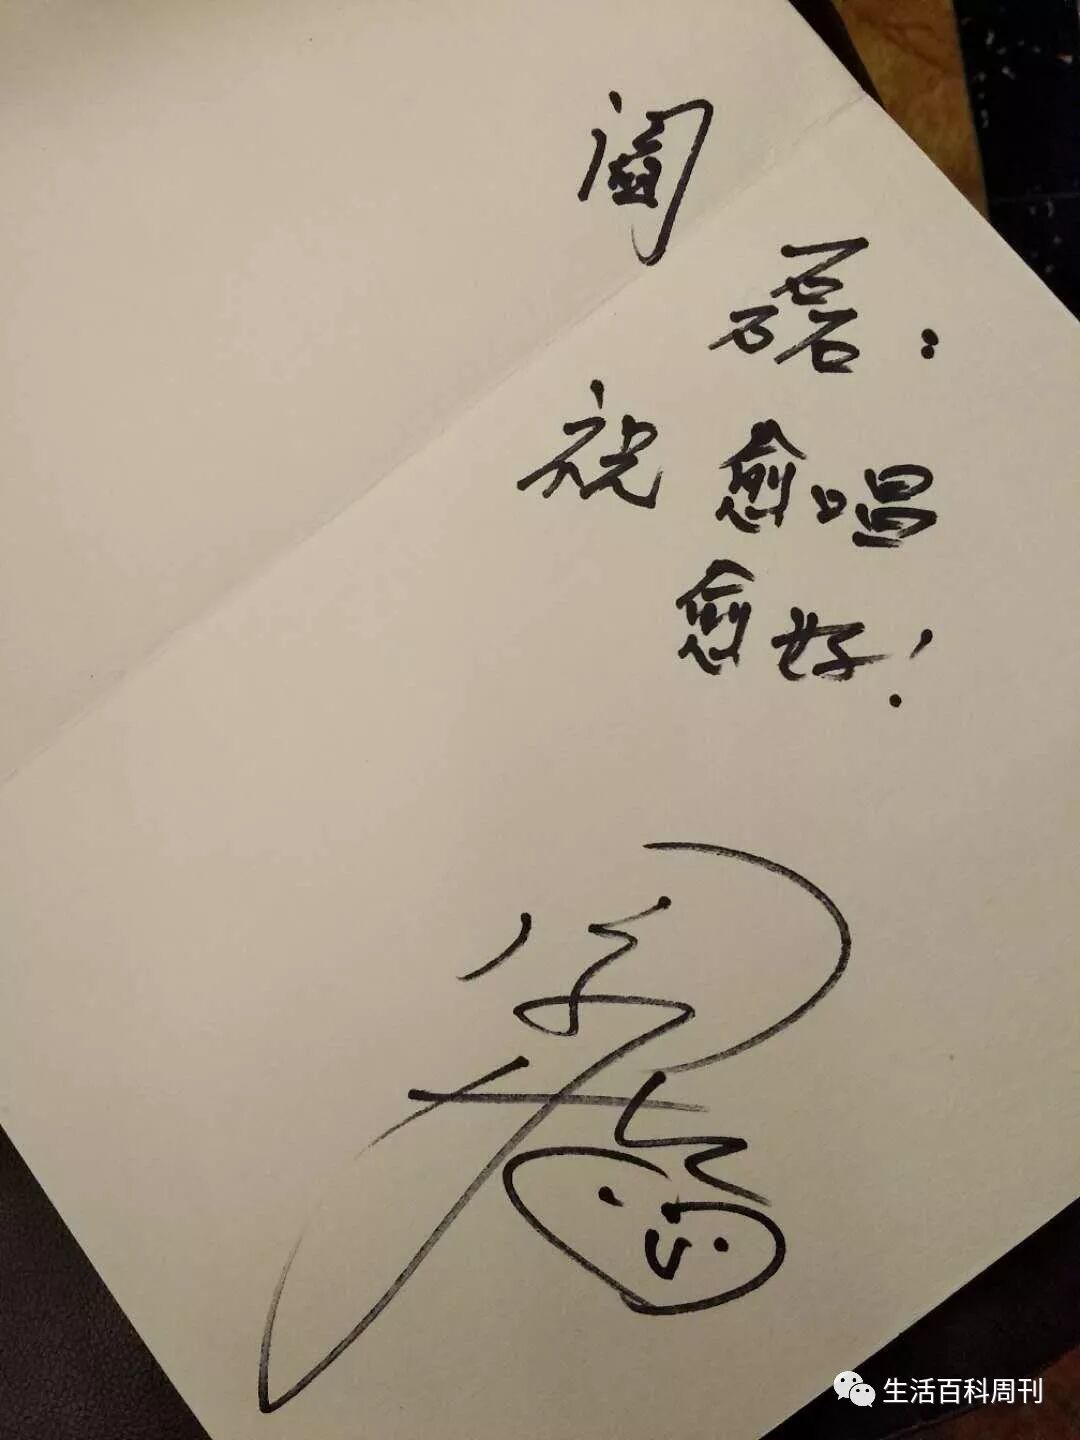 阎磊：
祝愈唱
愈好！
生活百科周刊